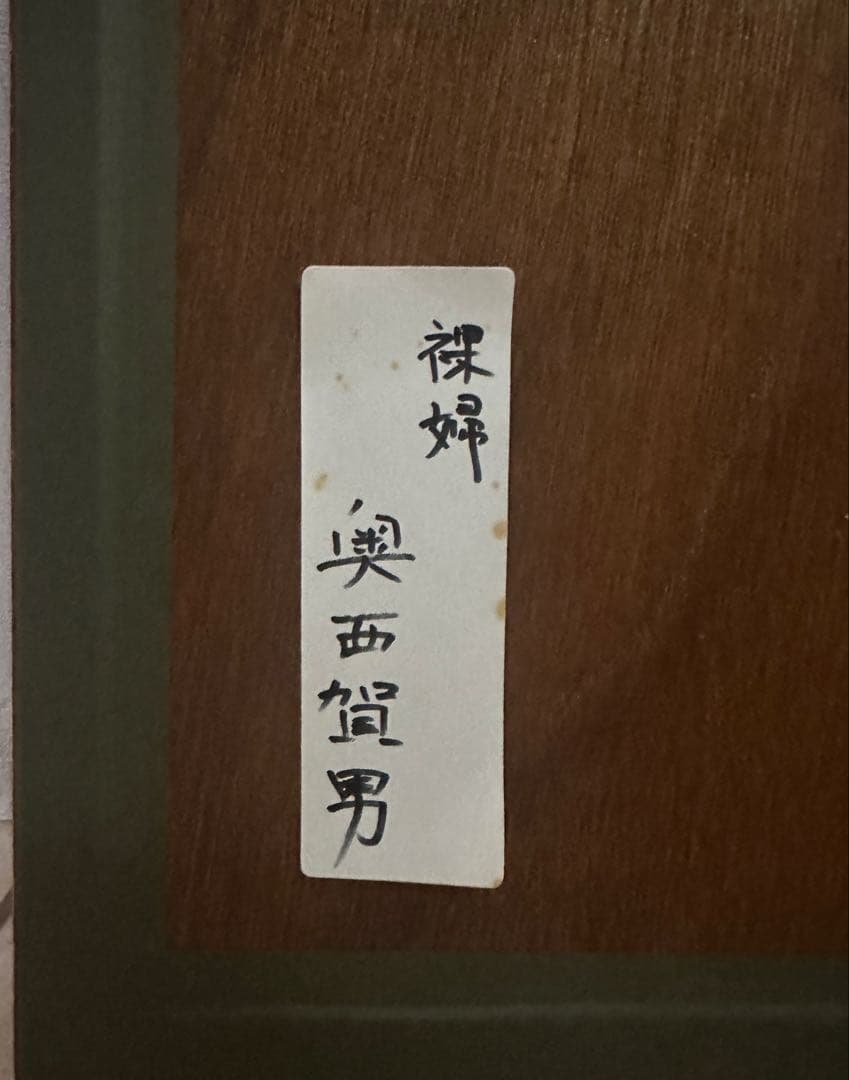 裸婦
奥西賀男